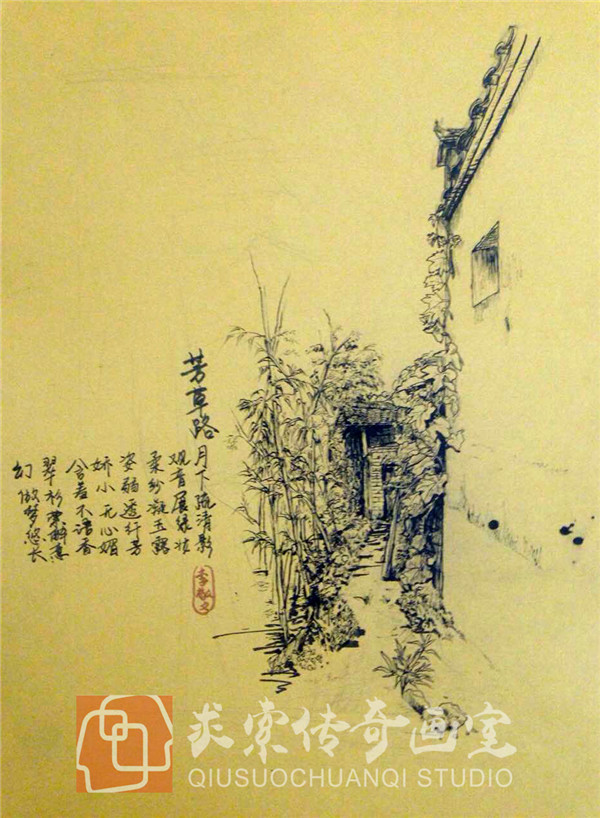 芳草路
月下疏清影
观音展绿妆
柔纱凝玉露
姿弱透纤芳
娇小无心媚
含羞不谙香
翠衫
幻做梦悠长
求索传奇画室
QIUSUOCHUANQI STUDIO